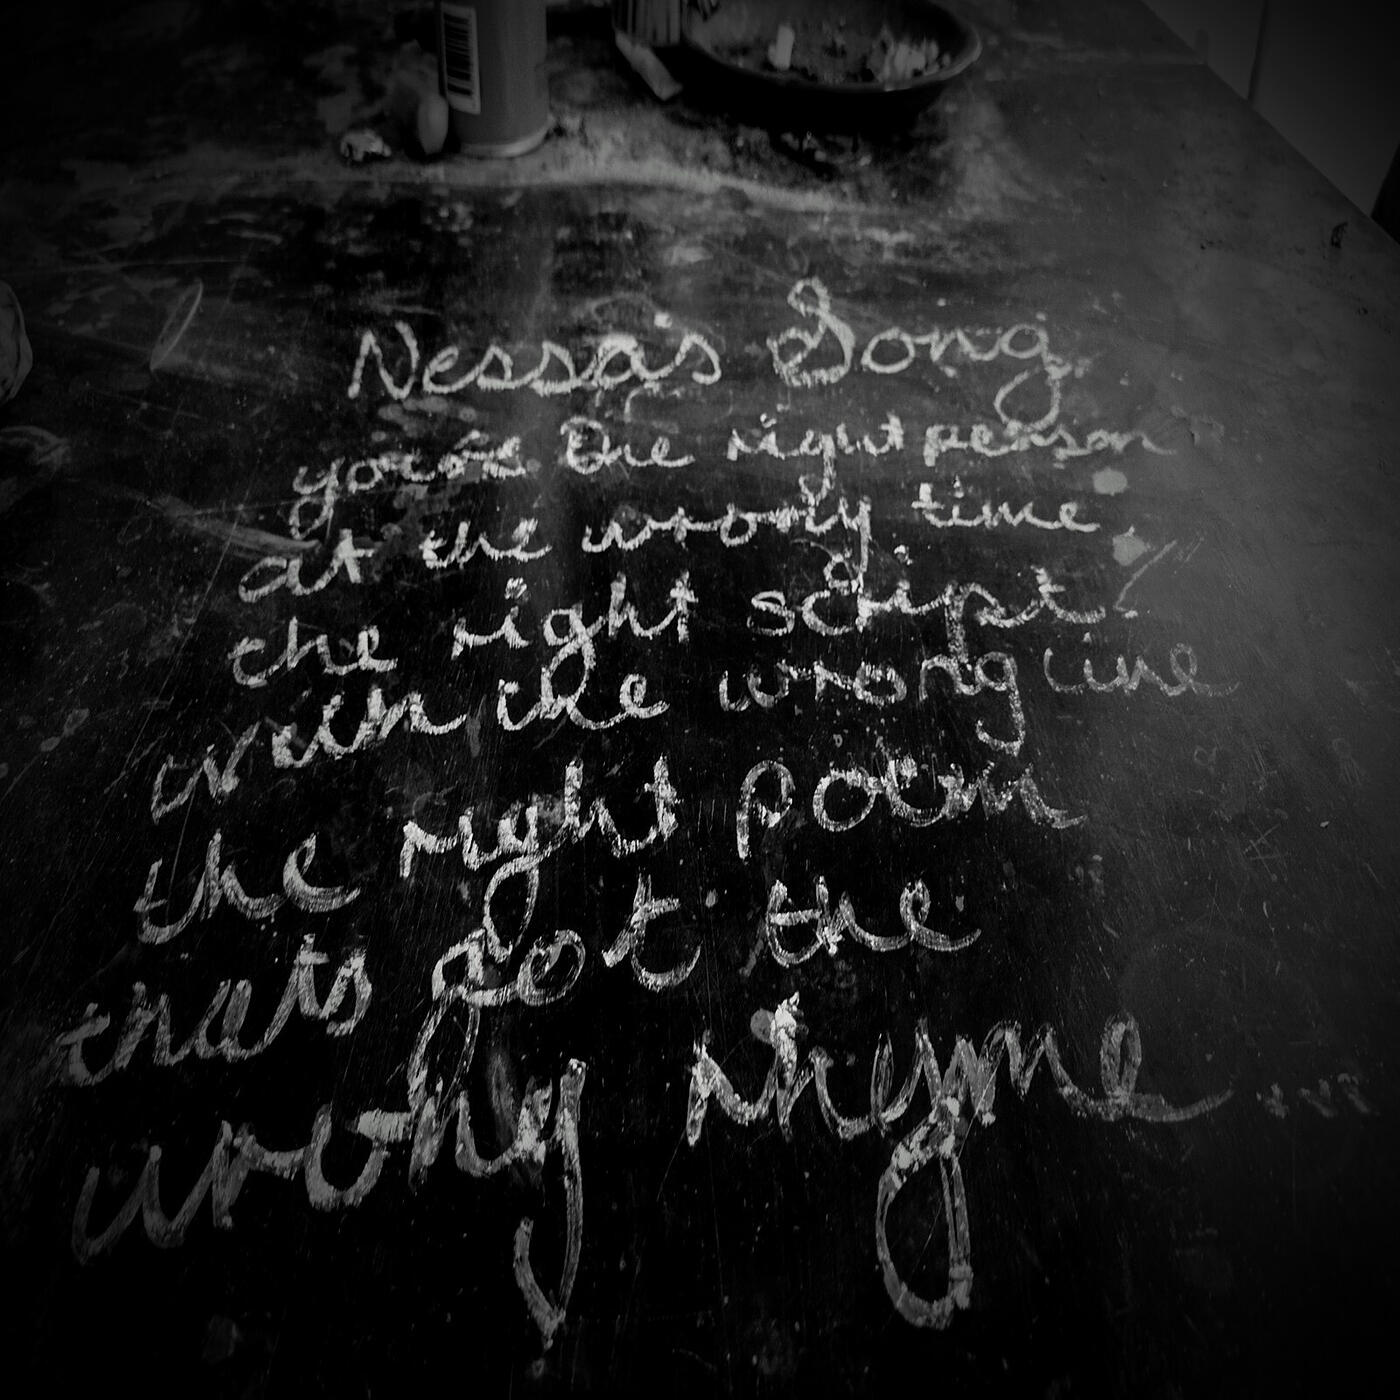 Nessa's Song
you're the right person
at the wrong time
the right script
with the wrong line
the right poem
thats got the
wrong rhyme ...